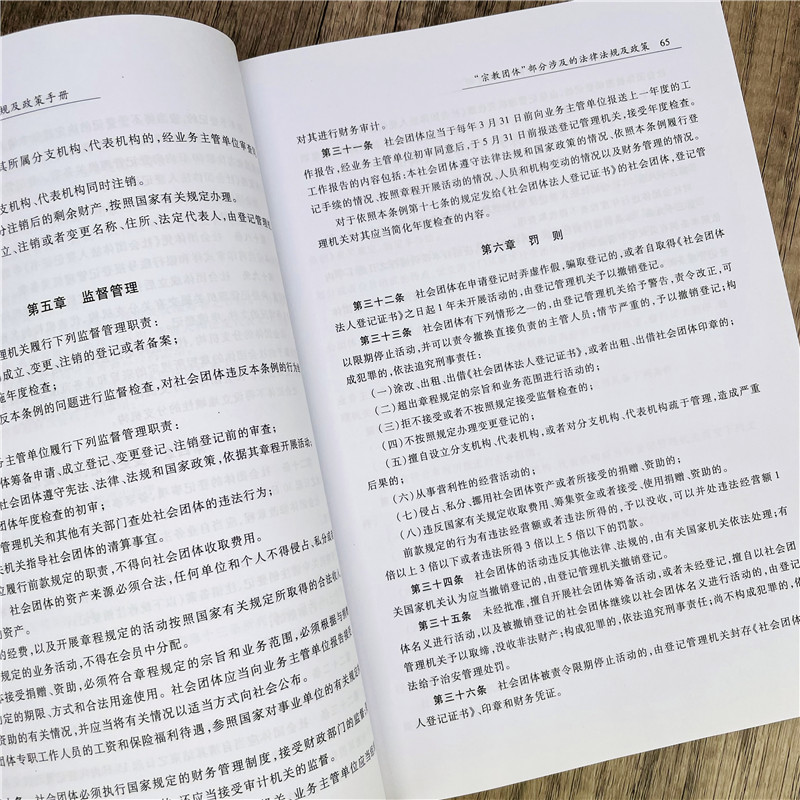 规及政策手册
其所属分支机构、代表机构的，经业务主管单位审查
支机构、代表机构同时注销。
分注销后的剩余财产，按照国家有关规定办理。
立、注销或者变更名称、住所、法定代表人，由登记管理机
第五章 监督管理
理机关履行下列监督管理职责：
成立、变更、注销的登记或者备案；
施年度检查；
反本条例的问题进行监督检查，对社会团体违反本条例的行为
务主管单位履行下列监督管理职责：
体筹备申请、成立登记、变更登记、注销登记前的审查；
社会团体遵守宪法、法律、法规和国家政策，依据其章程开展活动；
团体年度检查的初审；
管理机关和其他有关部门查处社会团体的违法行为；
关机关指导社会团体的清算事宜。
位履行前款规定的职责，不得向社会团体收取费用。
社会团体的资产来源必须合法，任何单位和个人不得侵占、私分或
的资产。
的经费，以及开展章程规定的活动按照国家有关规定所取得的合法收入
规定的业务活动，不得在会员中分配。
体接受捐赠、资助，必须符合章程规定的宗旨和业务范围，必须根据与
定的期限、方式和合法用途使用。社会团体应当向业务主管单位报告
资助的有关情况，并应当将有关情况以适当方式向社会公布。
团体专职工作人员的工资和保险福利待遇，参照国家对事业单位的有关规定
社会团体必须执行国家规定的财务管理制度，接受财政部门的监督
还应当接受审计机关的监督。
业务主管单位应当
“宗教团体”部分涉及的法律法规及政策 65
对其进行财务审计。
第三十一条 社会团体应当于每年3月31日前向业务主管单位报送上一年度的工
作报告，经业务主管单位初审同意后，于5月31日前报送登记管理机关，接受年度检查。
工作报告的内容包括：本社会团体遵守法律法规和国家政策的情况、依照本条例履行登
记手续的情况、按照章程开展活动的情况、人员和机构变动的情况以及财务管理的情况。
对于依照本条例第十七条的规定发给《社会团体法人登记证书》的社会团体，登记管
理机关对其应当简化年度检查的内容。
第六章 罚 则
第三十二条 社会团体在申请登记时弄虚作假，骗取登记的，或者自取得《社会团体
法人登记证书》之日起1年未开展活动的，由登记管理机关予以撤销登记。
第三十三条 社会团体有下列情形之一的，由登记管理机关给予警告，责令改正，可
以限期停止活动，并可以责令撤换直接负责的主管人员；情节严重的，予以撤销登记；构
成犯罪的，依法追究刑事责任：
（一）涂改、出租、出借《社会团体法人登记证书》，或者出租、出借社会团体印章的；
（二）超出章程规定的宗旨和业务范围进行活动的；
（三）拒不接受或者不按照规定接受监督检查的；
（四）不按照规定办理变更登记的；
（五）擅自设立分支机构、代表机构，或者对分支机构、代表机构疏于管理，造成严重
后果的；
（六）从事营利性的经营活动的；
（七）侵占、私分、挪用社会团体资产或者所接受的捐赠、资助的；
（八）违反国家有关规定收取费用、筹集资金或者接受、使用捐赠、资助的。
前款规定的行为有违法经营额或者违法所得的，予以没收，可以并处违法经营额1
倍以上3倍以下或者违法所得3倍以上5倍以下的罚款。
第三十四条 社会团体的活动违反其他法律、法规的，由有关国家机关依法处理；有
关国家机关认为应当撤销登记的，由登记管理机关撤销登记。
第三十五条 未经批准，擅自开展社会团体筹备活动，或者未经登记，擅自以社会团
体名义进行活动，以及被撤销登记的社会团体继续以社会团体名义进行活动的，由登记
管理机关予以取缔，没收非法财产；构成犯罪的，依法追究刑事责任；尚不构成犯罪的，依
法给予治安管理处罚。
第三十六条 社会团体被责令限期停止活动的，由登记管理机关封存《社会团体法
人登记证书》、印章和财务凭证。